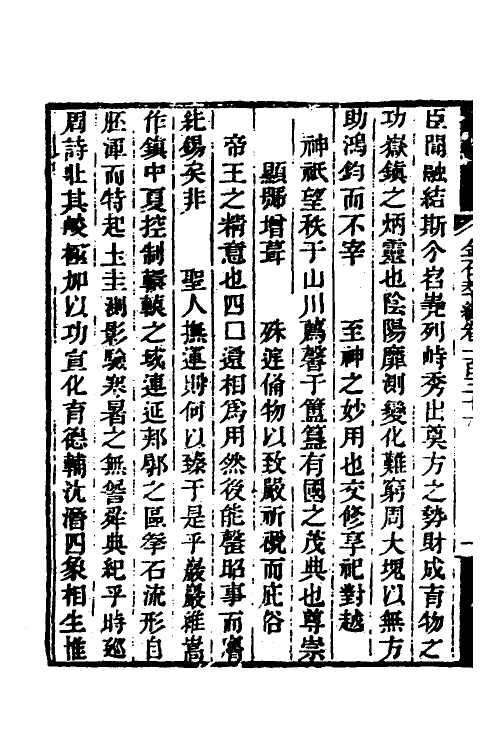 臣聞融結斯分岧嶤列峙秀出奠方之勢財成育物之
功嶽鎮之炳靈也陰陽靡測變化難窮周大塊以無方
助鴻鈞而不宰　　至神之妙用也交修享祀對越
神祇望秩于山川薦馨于簠簋有國之茂典也尊崇
顯號增葺　　殊庭備物以致嚴祈禬而庇俗
帝王之精意也四口遞相爲用然後能罄昭事而膺
純錫矣非　　聖人撫運則何以臻于是乎巖巖維嵩
作鎮中夏控制轘轅之域連延邦郟之區拳石流形自
胚渾而特起土圭測影驗寒暑之無諐舜典紀乎時巡
周詩壯其峻極加以功宣化育德輔沈潛四象相生惟
金石萃編卷一百三十
一